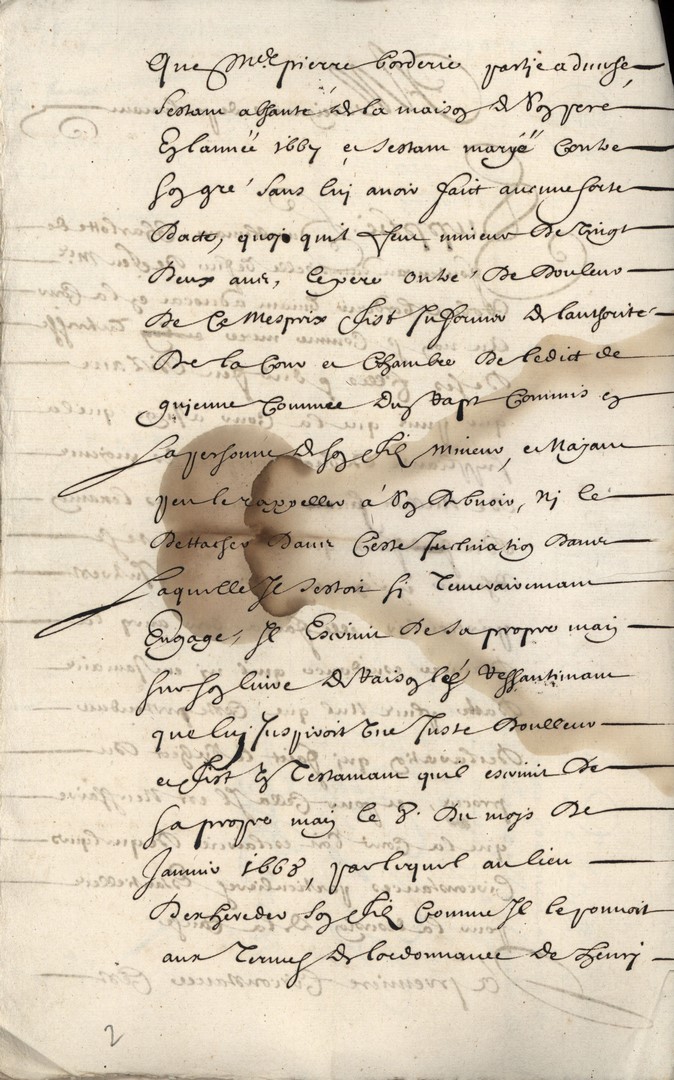 Que Mer pierre borderie partie aduerse
sestant absanté de la maison de son pere
En lanneë 1667 et sestant maryë contre
son gré sans luj auoir faict aucune sorte
Dacte, quoj quil feut mineur De vingt
Deux ans, le pere outré De Douleur
De Ce Mesprix fist Informer de lauthorité
De la Cour et Chambre De ledict de
guienne Comme Du Rapt Commis en
La personne de son fils Mineur, et Nayant
peu le rappeller á son Debuoir, Nj le
Dettacher Dauec Ceste Inclination Dans
Laquelle Il sestoit si Temerairemant
Engagé, Il Escriuit De sa propre main
sur son liure de Raison les Ressantimans
que luj Inspiroit Vne Juste Doulleur
et fist Vn Testamant quil escriuit De
sa propre main le 8. Du mojs De
Januier 1668, par lequel au lieu
Desxhereder son fils Comme Il le pouuoit
aux Termes de lordonnance de henrj
2